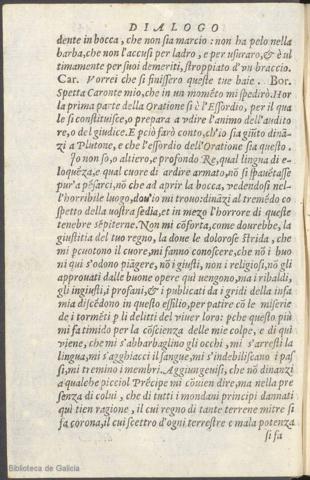 DIALOGO
dente in bocca, che non sia marcio: non ha pelo nella
barba, che non l'accusi per ladro, e per usuraro, & è ul
timamente per suoi demeriti, stroppiato d'un braccio.
Car. Vorrei che si finissero queste tue baie. Bor.
Spetta Caronte mio, che in un momẽto mi spedirò. Hor
la prima parte della Oratione si è l'Essordio, per il qua
le si constituisce, o prepara a udire l'animo dell'audito
re, o del giudice. E pciò farò conto, ch'io sia giũto dinã-
zi a Plutone, e che l'essordio dell'Oratione sia questo.
Io non so, o altiero, e profondo Re, qual lingua di e-
loquẽza, e qual cuore di ardire armato, nõ si spauẽtasse
pur'a pẽsarci, nõ che ad aprir la bocca, vedendosi nel-
l'horribile luogo, dou'io mi trouo: dinãzi al tremẽdo co
spetto della uostra sedia, et in mezo l'horrore di queste
tenebre sẽpiterne. Non mi cõforta, come dourebbe, la
giustitia del tuo regno, la doue le dolorose strida, che
mi pcuotono il cuore, mi fanno conoscere, che nõ i buo
ni qui s'odono piãgere, nõ i giusti, non i religiosi, nõ gli
approuati dalle buone opere qui uengono, ma i ribaldi,
gli ingiusti, i profani, & i publicati da i gridi della infa
mia discẽdono in questo essilio, per patire cõ le miserie
de i tormẽti p li delitti del viuer loro: pche questo più
mi fa timido per la cõscienza delle mie colpe, e di qui
viene, che mi s'abbarbaglino gli occhi, mi s'arresti la
lingua, mi s'agghiacci il sangue, mi s'indeboliscano i pas
si, mi tremino i membri. Aggiungeuisi, che nõ dinanzi
a qualche picciol Prẽcipe mi cõuien dire, ma nella pre
senza di colui, che di tutti i mondani principi dannati
qui tien ragione, il cui regno di tante terrene mitre si
fa corona, il cui scettro d'ogni terrestre e mala potenza
si fa
Biblioteca de Galicia